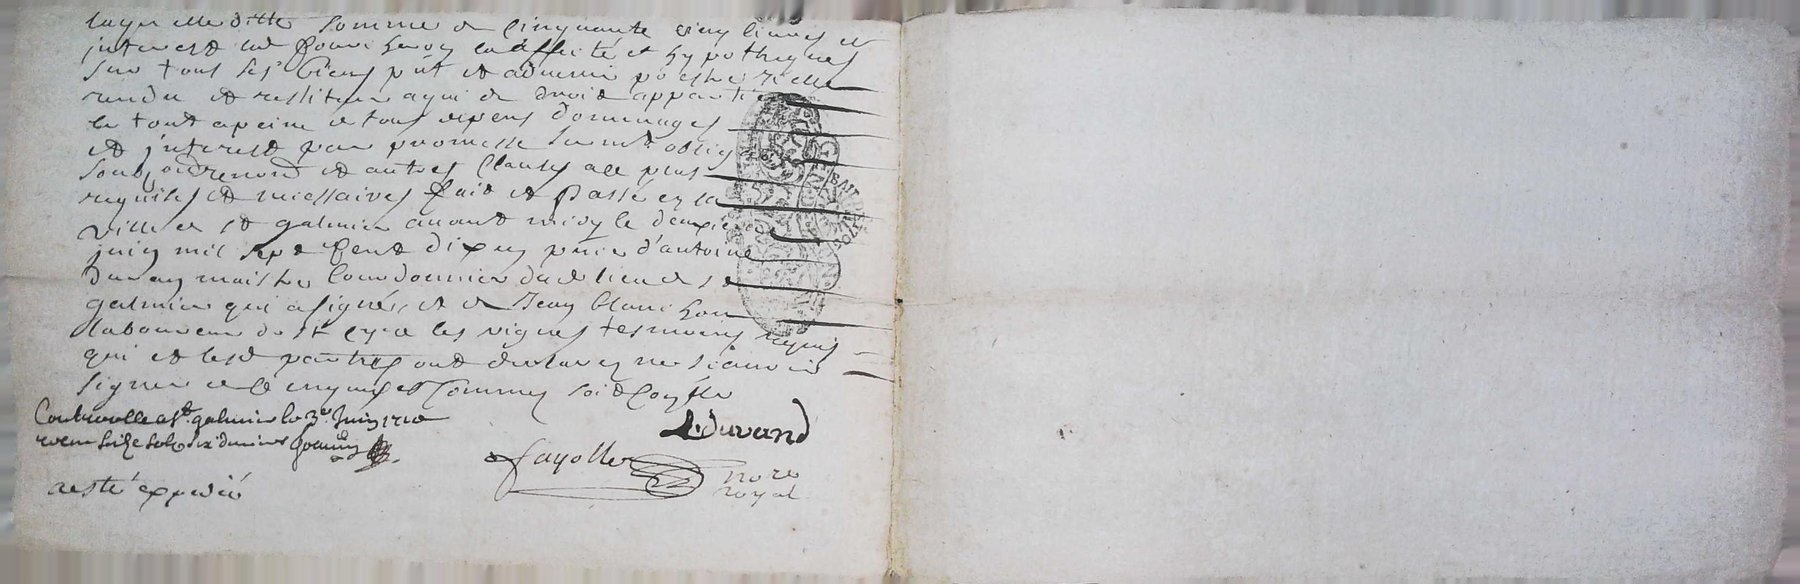 laquelle ditte somme de cinquante cinq livres et
interest led pourchenon en affecté et hypothequés
sur tous ses biens pnt et advenir po estre icelle
rendu et restituer a qui de droit appartie
le tout a peine de tous depens dommages
et interest par promesse serment oblig
soub renond et autres clauses a ce plus
requises et necessaires fait et passé en la
ville de st galmier avant midy le deuxie
juin mil sept cent dix en pnce d'antoine
durand maistre cordonnier dud lieu de st
galmier qui a signé et de Jean blanchon
laboureur de st cyre les vignes tesmoins requis
qui et lesd parties ont declaré ne scavoir
signer de ce enquis et sommés soit controllé
Controuolle a st galmier le 3e Juin 1710
receu seize sols six deniers
A. durand
fayolle
nore
royal
a esté expedié